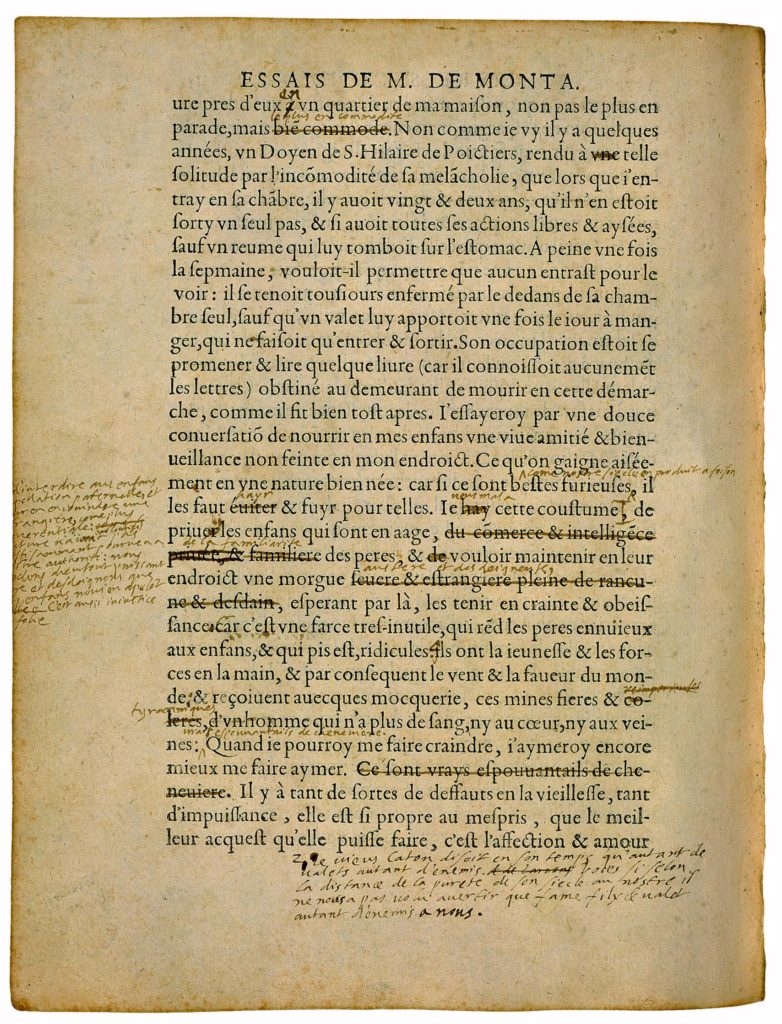 ESSAIS DE M. DE MONTA.
en
ure pres d'eux vn quartier de ma maison, non pas le plus en
le plus en commodité
parade, mais biē commode. Non comme ie vy il y a quelques
années, vn Doyen de S. Hilaire de Poictiers, rendu à vne telle
ſolitude par l'incōmodité de ſa melācholie, que lors que i'en-
tray en ſa chābre, il y auoit vingt & deux ans, qu'il n'en eſtoit
ſorty vn ſeul pas, & ſi auoit toutes ſes actions libres & ayſées,
ſauf vn reume qui luy tomboit ſur l'eſtomac. A peine vne fois
la ſepmaine, vouloit-il permettre que aucun entraſt pour le
voir: il ſe tenoit touſiours enfermé par le dedans de ſa cham-
bre ſeul, ſauf qu'vn valet luy apportoit vne fois le iour à man-
ger, qui ne faiſoit qu'entrer & ſortir. Son occupation eſtoit ſe
promener & lire quelque liure (car il connoiſſoit aucunemēt
les lettres) obſtiné au demeurant de mourir en cette démar-
che, comme il fit bien toſt apres. I'eſſayeroy par vne douce
conuerſatiō de nourrir en mes enfans vne viue amitié & bien-
ueillance non feinte en mon endroict. Ce qu'on gaigne aiſée-
come nostre siecle en produit a foison
ment en vne nature bien née: car ſi ce ſont beſtes furieuſes, il
hayr
les faut éuiter & fuyr pour telles. Ie hay cette couſtume de
priuer les enfans qui ſont en aage, du cōmerce & intelligēce
de la familiarite
priuée, & familiere des peres & de vouloir maintenir en leur
austere et desdeigneuse
endroict vne morgue ſeuere & eſtrangiere pleine de rancu-
ne & deſdain, eſperant par là, les tenir en crainte & obeiſ-
ſance. Car c'eſt vne farce treſ-inutile, qui rēd les peres ennuieux
aux enfans, & qui pis eſt, ridicules. Ils ont la ieuneſſe & les for-
ces en la main, & par conſequent le vent & la faueur du mon-
de, & reçoiuent auecques mocquerie, ces mines fieres & co-
tyranniques
leres, d'vn homme qui n'a plus de ſang, ny au cœur, ny aux vei-
vrais espouuantails de cheneuiere.
nes: Quand ie pourroy me faire craindre, i'aymeroy encore
mieux me faire aymer. Ce ſont vrays eſpouuantails de che-
neuiere. Il y à tant de ſortes de deffauts en la vieilleſſe, tant
d'impuiſſance, elle eſt ſi propre au meſpris, que le meil-
leur acqueſt qu'elle puiſſe faire, c'eſt l'affection & amour
interdire aus enfans
paternelle
nous
enfans nous en
C'est aussi iniustice
folie
le vieus Caton disoit en son temps qu'autant de
valets autant d'enemis. Voies si selon
la distance de la purete de son siecle au nostre il
ne nous a pas voulu avertir que fame filx & valet
autant d'enemis a nous.